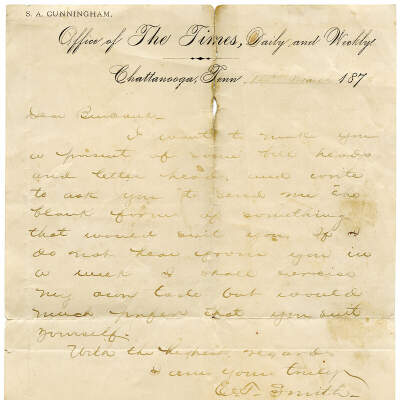 S. A. CUNNINGHAM.
Office of The Times, Daily and Weekly
Chattanooga, Tenn 187
Dear Burbank:
I want to make you
a present of some bill heads
and letter heads, and write
to ask you to send me the
blank form of something
that would suit you. If I
do not hear from you in
a week I shall exercise
my own taste but would
much prefer that you suit
yourself.
With the highest regard
I am yours truly
E. T. Smith